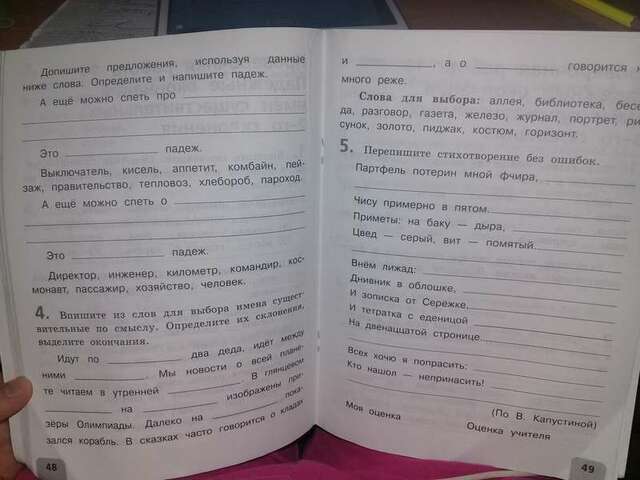 Допишите предложения, используя данные
ниже слова. Определите и напишите падеж.
А ещё можно спеть про
Это падеж.
Выключатель, кисель, аппетит, комбайн, пей-
заж, правительство, тепловоз, хлебороб, пароход.
А ещё можно спеть о
Это падеж.
Директор, инженер, километр, командир, кос-
монавт, пассажир, хозяйство, человек.
4. Впишите из слов для выбора имена сущест-
вительные по смыслу. Определите их склонения,
выделите окончания.
Идут по два деда, идёт между
ними . Мы новости о всей плане-
те читаем в утренней . В глянцевом
на изображены при-
зёры Олимпиады. Далеко на пока-
зался корабль. В сказках часто говорится о кладах
48
и , а о говорится н
много реже.
Слова для выбора: аллея, библиотека, бесе-
да, разговор, газета, железо, журнал, портрет, ри-
сунок, золото, пиджак, костюм, горизонт.
5. Перепишите стихотворение без ошибок.
Партфель потерин мной фчира,
Чису примерно в пятом.
Приметы: на баку — дыра,
Цвед — серый, вит — помятый.
Внём лижад:
Днивник в облошке,
И зописка от Сережке,
И тетратка с еденицой
На двенаццатой странице.
Всех хочю я попрасить:
Кто нашол — непринасить!
(По В. Капустиной)
Моя оценка Оценка учителя
49